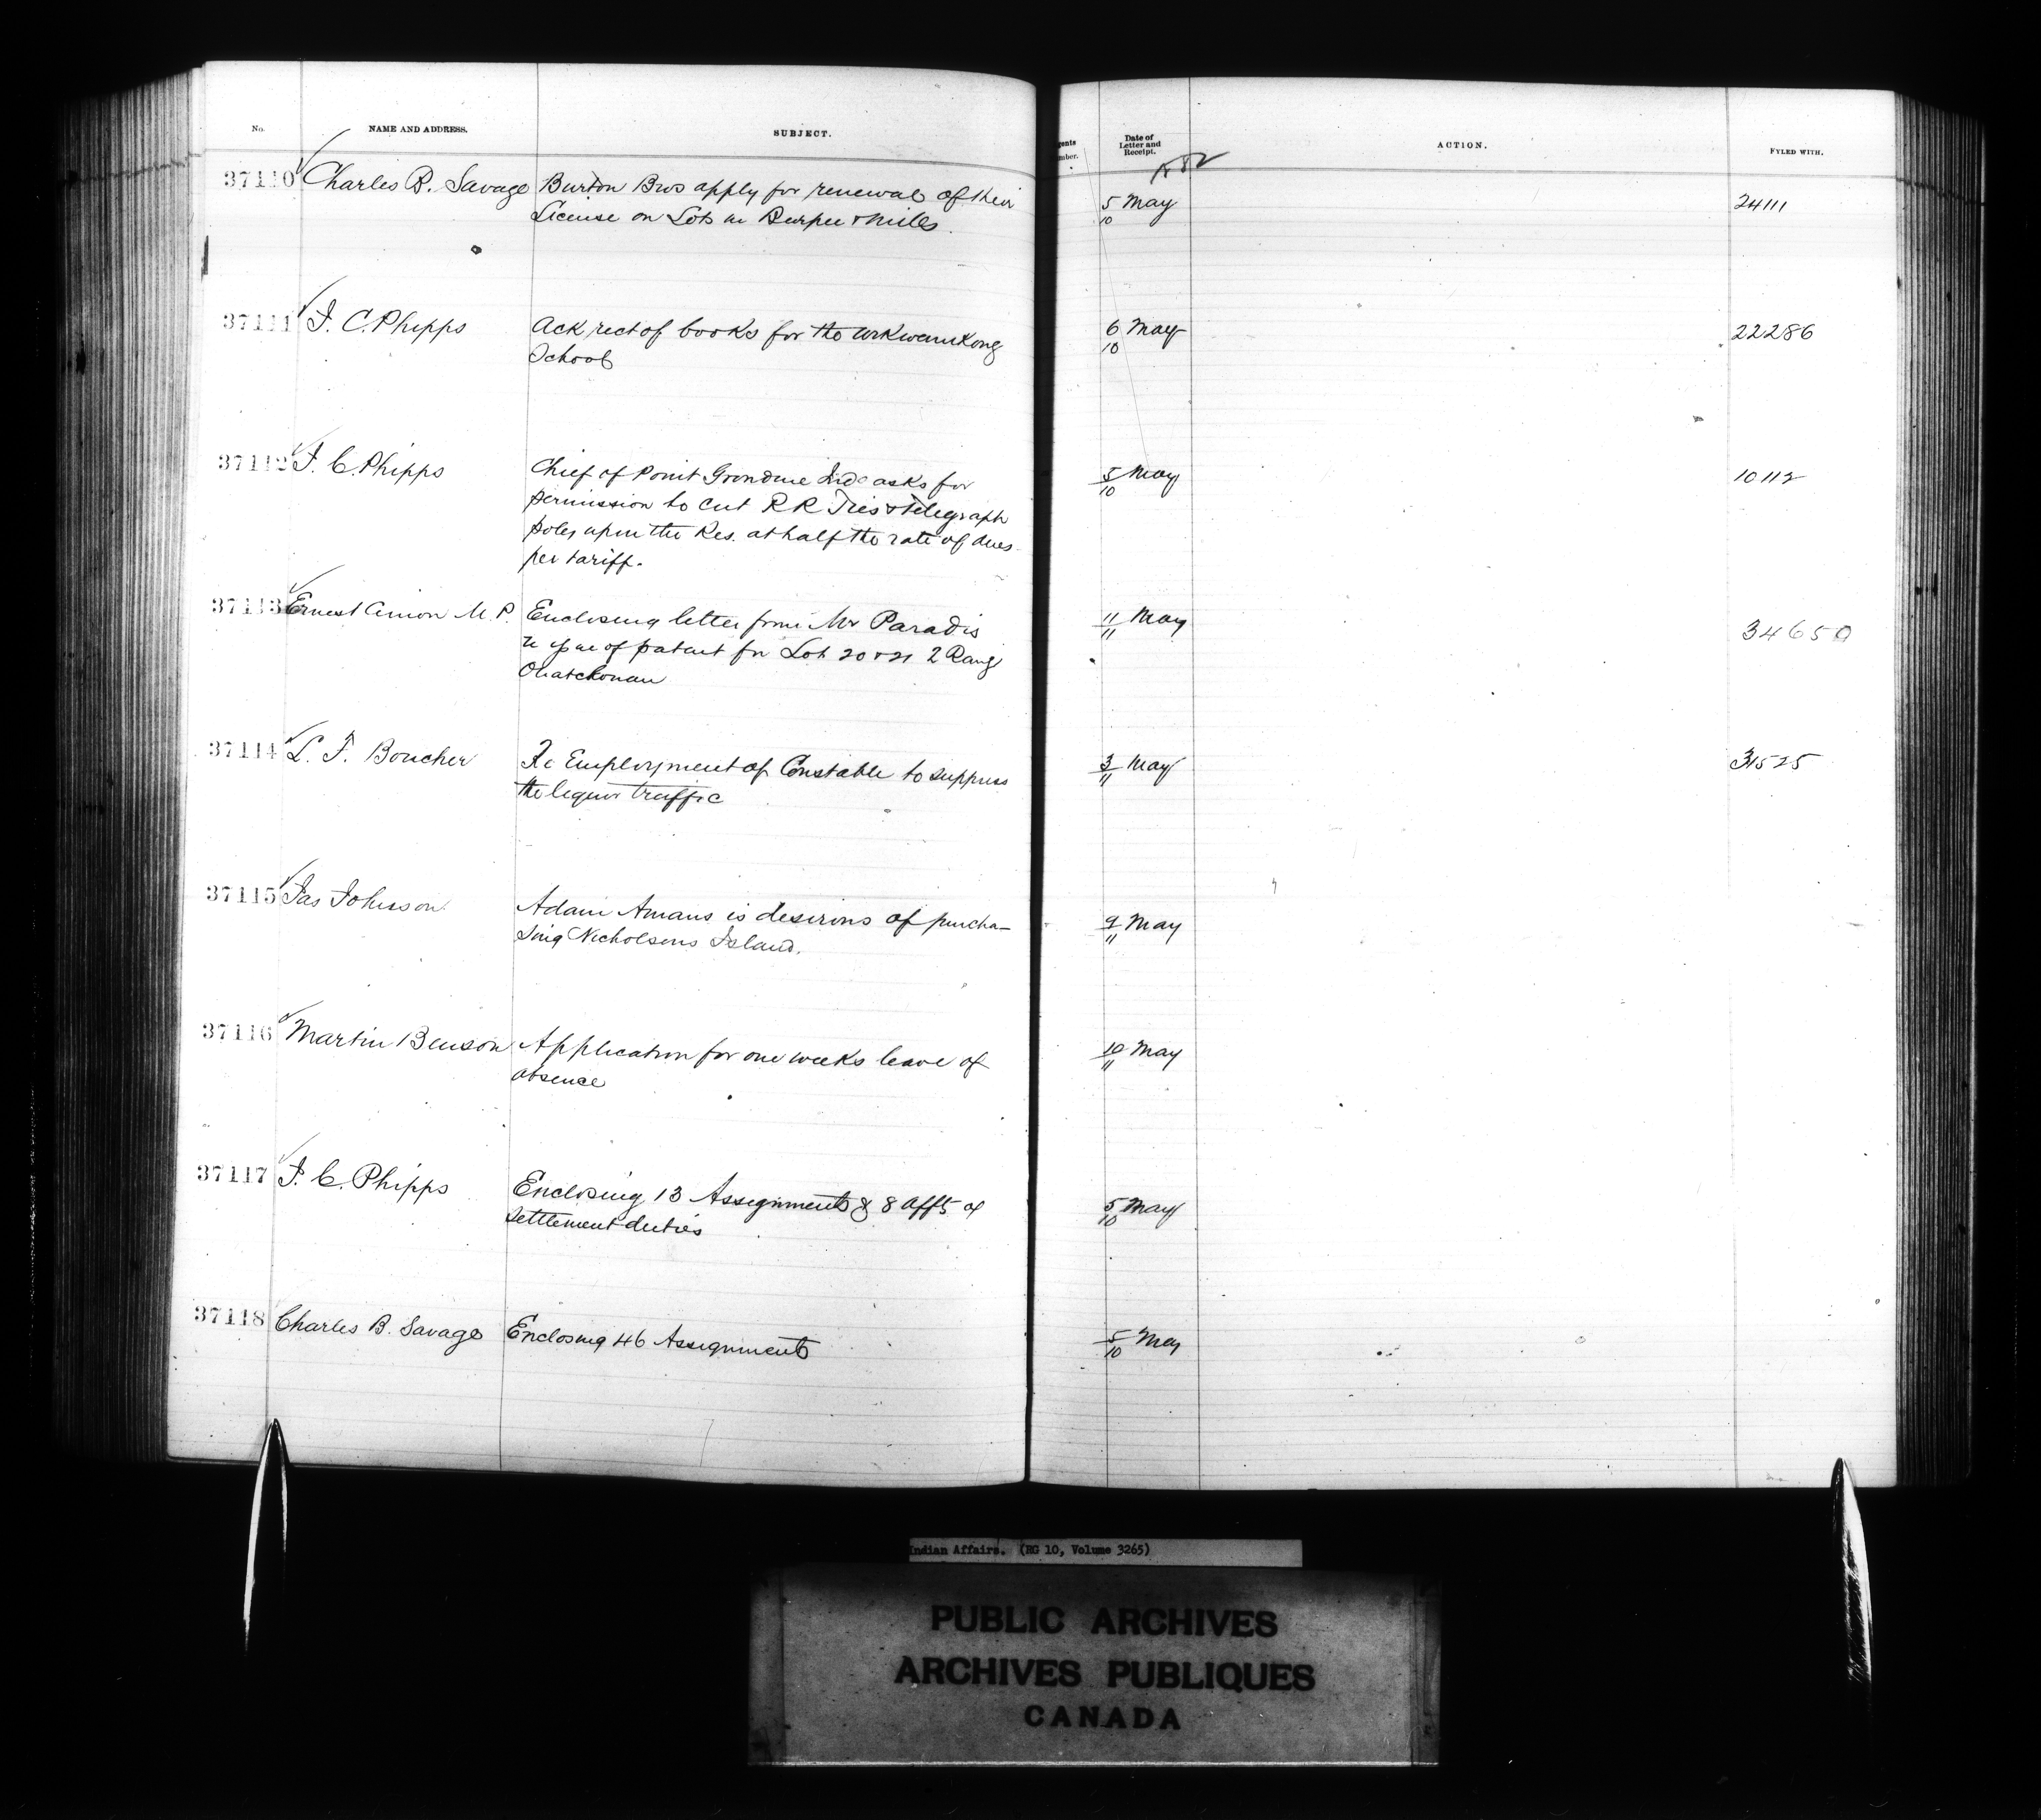 No. NAME AND ADDRESS. SUBJECT.
37110 Charles B. Savage Burton Bros apply for renewal of their
License on Lots in Burpee & Mills.
37111 J. C. Phipps Ack rect of books for the
School
37112 J. C. Phipps Chief of Point Grondine Inds asks for
permission to cut R R Ties & telegraph
poles upon the Res. at half the rate of dues
per tariff.
37113 Ernest Cimon M.P. Enclosing letter from Mr Paradis
re issue of patent for Lot 20 & 21 2 Rang
Ouiatchouan
37114 L. F. Boucher Re Employment of Constable to suppress
the liquor traffic
37115 Jas Johnson Adam Amans is desirous of purcha-
sing Nicholsons Island.
37116 Martin Benson Application for one weeks leave of
absence
37117 J. C. Phipps Enclosing 13 Assignments & 8 Affts of
settlement duties
37118 Charles B. Savage Enclosing 46 Assignments
gents
mber.
Date of
Letter and
Receipt.
ACTION. FYLED WITH.
5 May
10
24111
6 May
10
22286
5 May
10
10112
11 May
11
34650
3 May
11
31525
9 May
11
10 May
11
5 May
10
5 May
10
Indian Affairs. (RG 10, Volume 3265)
PUBLIC ARCHIVES
ARCHIVES PUBLIQUES
CANADA